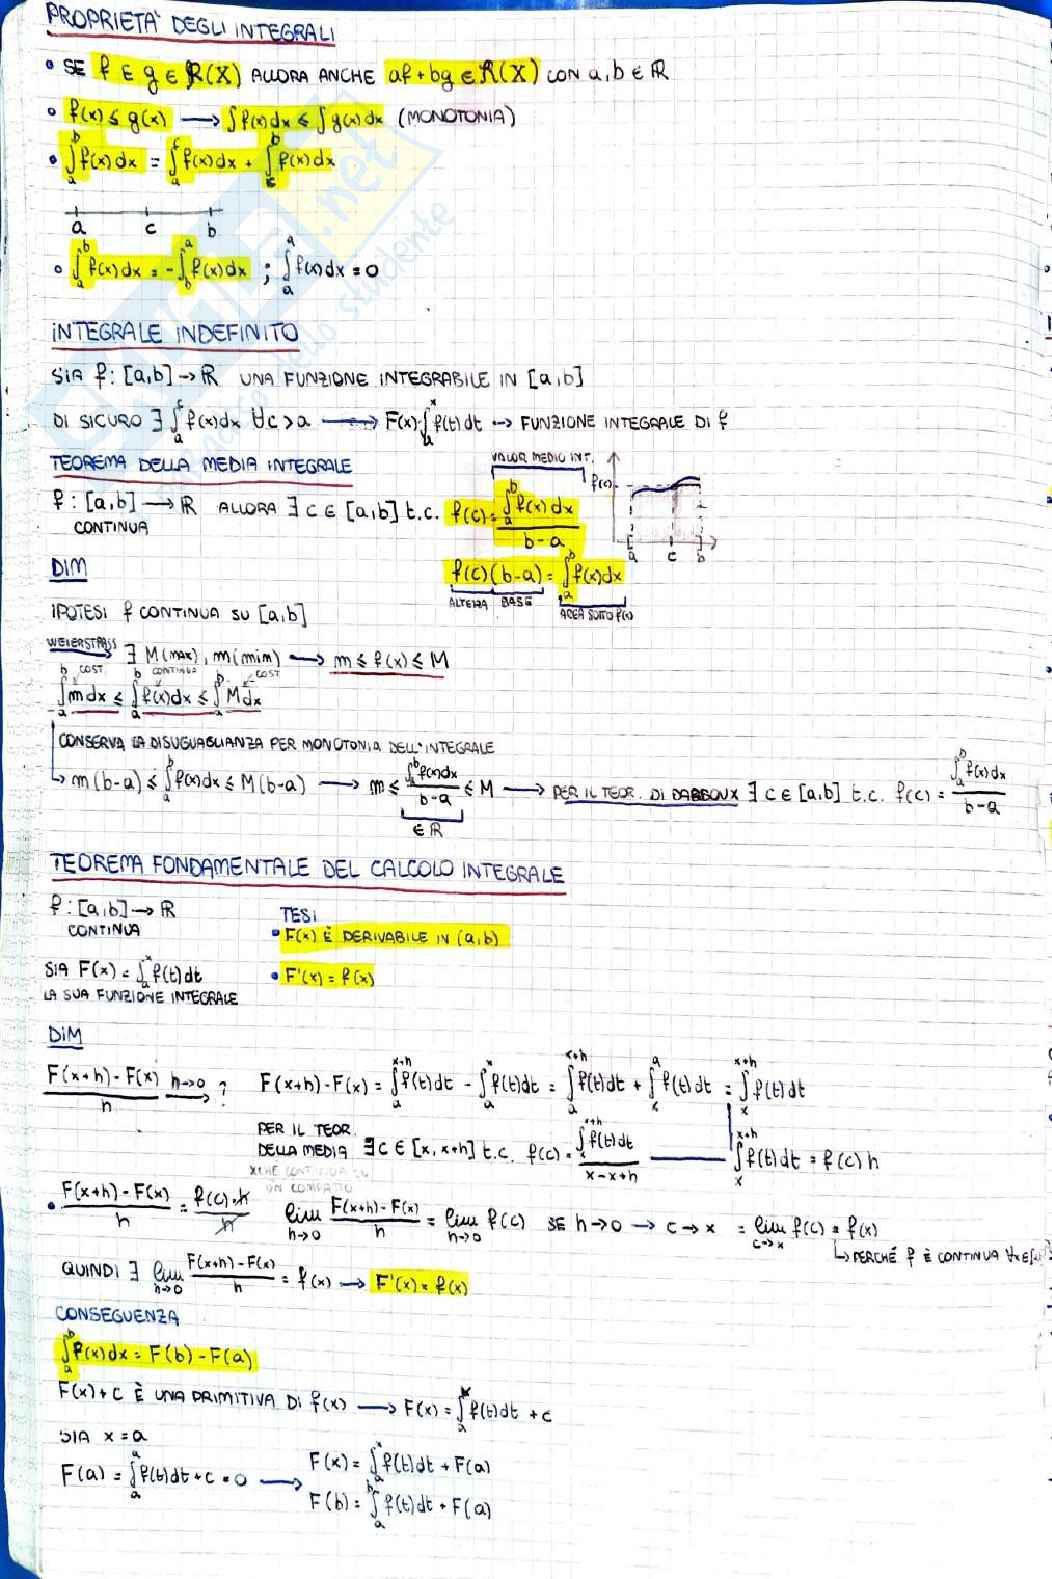 PROPRIETA' DEGLI INTEGRALI
• SE f E g ∈ R(X) ALLORA ANCHE af + bg ∈ R(X) CON a, b ∈ ℝ
• f(x) ≤ g(x) → ∫f(x)dx ≤ ∫g(x)dx (MONOTONIA)
• ∫_a^b f(x)dx = ∫_a^c f(x)dx + ∫_c^b f(x)dx
a c b
• ∫_a^b f(x)dx = -∫_b^a f(x)dx ; ∫_a^a f(x)dx = 0
INTEGRALE INDEFINITO
SIA f: [a,b] → ℝ UNA FUNZIONE INTEGRABILE IN [a,b]
DI SICURO ∃ ∫_a^c f(x)dx ∀c > a → F(x)·∫_a^x f(t)dt → FUNZIONE INTEGRALE DI f
TEOREMA DELLA MEDIA INTEGRALE
VALOR MEDIO INT.
f: [a,b] → ℝ ALLORA ∃ c ∈ [a,b] t.c. f(c) = ∫_a^b f(x)dx / b-a
CONTINUA
f(c)
a c b
f(c)(b-a) = ∫_a^b f(x)dx
ALTEZZA BASE AREA SOTTO f(x)
DIM
IPOTESI f CONTINUA SU [a,b]
WEIERSTRASS ∃ M(MAX), m(min) → m ≤ f(x) ≤ M
COST CONTINUA COST
∫_a^b m dx ≤ ∫_a^b f(x)dx ≤ ∫_a^b M dx
CONSERVA LA DISUGUAGLIANZA PER MONOTONIA DELL'INTEGRALE
↳ m(b-a) ≤ ∫_a^b f(x)dx ≤ M(b-a) → m ≤ ∫_a^b f(x)dx / b-a ≤ M → PER IL TEOR. DI DARBOUX ∃ c ∈ [a,b] t.c. f(c) = ∫_a^b f(x)dx / b-a
∈ ℝ
TEOREMA FONDAMENTALE DEL CALCOLO INTEGRALE
f: [a,b] → ℝ
CONTINUA
TESI
• F(x) È DERIVABILE IN (a,b)
SIA F(x) = ∫_a^x f(t)dt
LA SUA FUNZIONE INTEGRALE
• F'(x) = f(x)
DIM
F(x+h) - F(x) / h h→0 → ? F(x+h) - F(x) = ∫_a^{x+h} f(t)dt - ∫_a^x f(t)dt = ∫_a^{x+h} f(t)dt + ∫_x^a f(t)dt = ∫_x^{x+h} f(t)dt
PER IL TEOR.
DELLA MEDIA ∃ c ∈ [x, x+h] t.c. f(c) = ∫_x^{x+h} f(t)dt / x-x+h — ∫_x^{x+h} f(t)dt = f(c)h
XCHÉ CONTINUA SU
UN COMPATTO
• F(x+h) - F(x) / h = f(c)·h / h lim_{h→0} F(x+h) - F(x) / h = lim_{h→0} f(c) SE h→0 → c→x = lim_{c→x} f(c) = f(x)
↳ PERCHÉ f È CONTINUA ∀x∈[
QUINDI ∃ lim_{h→0} F(x+h) - F(x) / h = f(x) → F'(x) = f(x)
CONSEGUENZA
∫_a^b f(x)dx = F(b) - F(a)
F(x)+c È UNA PRIMITIVA DI f(x) → F(x) = ∫_a^x f(t)dt + c
SIA x = a
F(a) = ∫_a^a f(t)dt + c = 0 → F(x) = ∫_a^x f(t)dt + F(a)
F(b) = ∫_a^b f(t)dt + F(a)